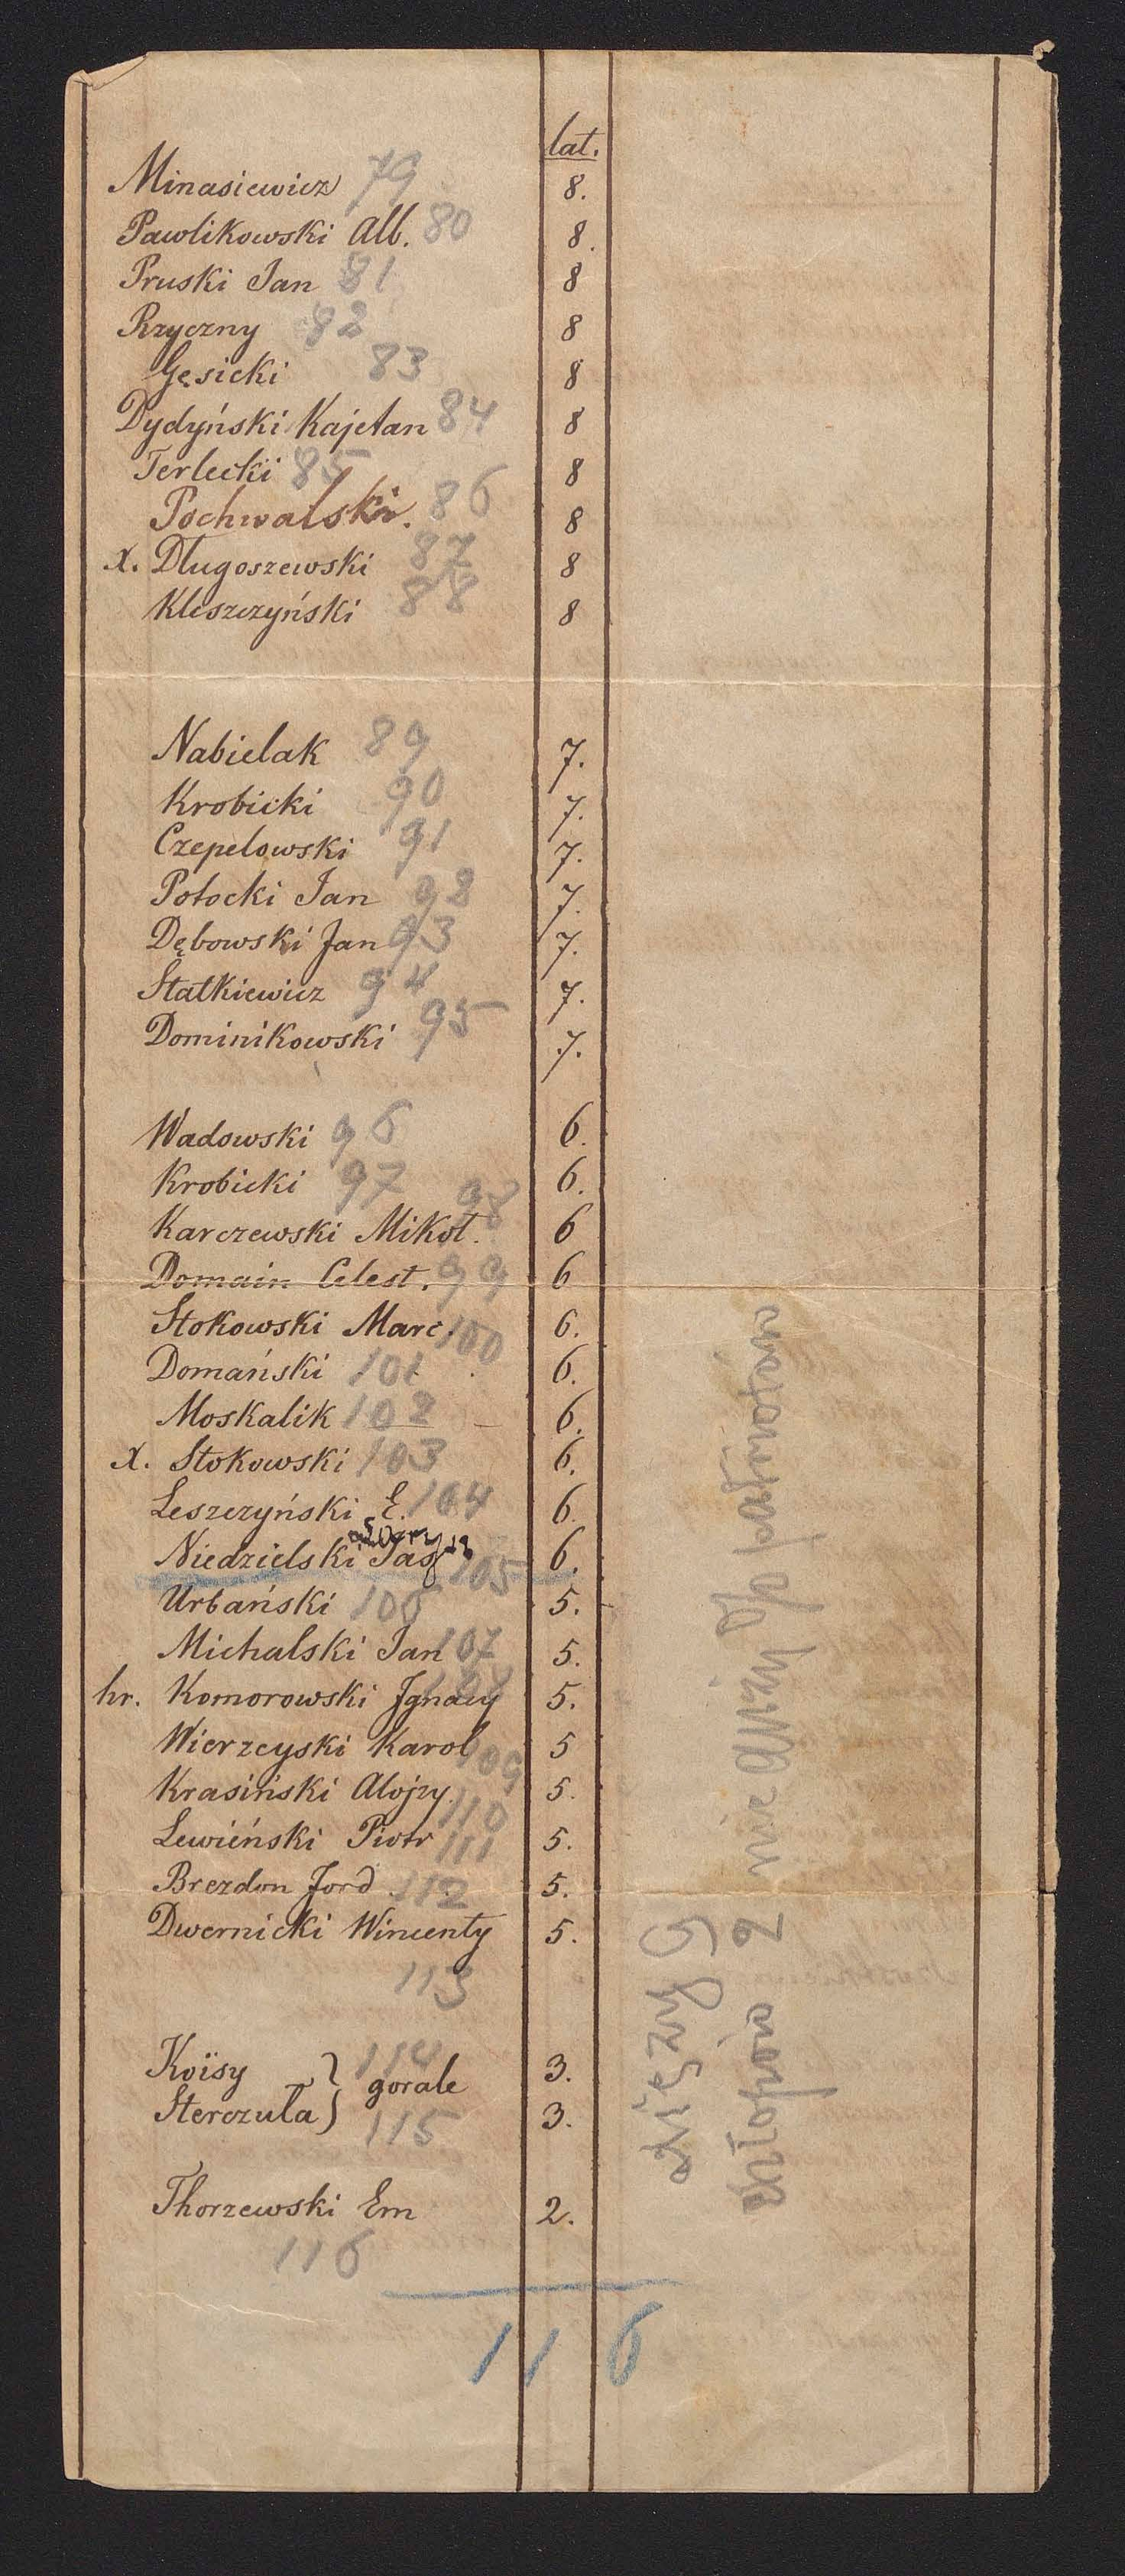 lat.
Minasiewicz 79 8.
Pawlikowski Alb. 80 8.
Pruski Jan 81 8
Rzyczny 82 8
Gęsicki 83 8
Dydyński Kajetan 84 8
Terlecki 85 8
Pochwalski. 86 8
X. Długoszewski 87 8
Kleszczyński 88 8
Nabielak 89 7.
Krobicki 90 7.
Czepelowski 91 7.
Potocki Jan 92 7.
Dębowski Jan 93 7.
Statkiewicz 94 7.
Dominikowski 95 7.
Wadowski 96 6.
Krobicki 97 6.
Karczewski Mikoł. 98 6
Domain Celest. 99 6
Stokowski Marc. 100 6.
Domański 101 6.
Moskalik 102 6.
X. Stokowski 103 6.
Leszczyński E. 104 6.
Niedzielski 105 6.
Urbański 106 5.
Michalski Jan 107 5.
hr. Komorowski Ignacy 108 5.
Wierzcyski Karol 109 5
Krasiński Alojzy. 110 5.
Lewiński Piotr 111 5.
Brezdon Ford 112 5.
Dwernicki Wincenty 5.
113
Koïsy } 114 3.
gorale
Sterczuła } 115 3.
Thorzewski Em 2.
116
116
Księzy 9
chłopów 2 nie